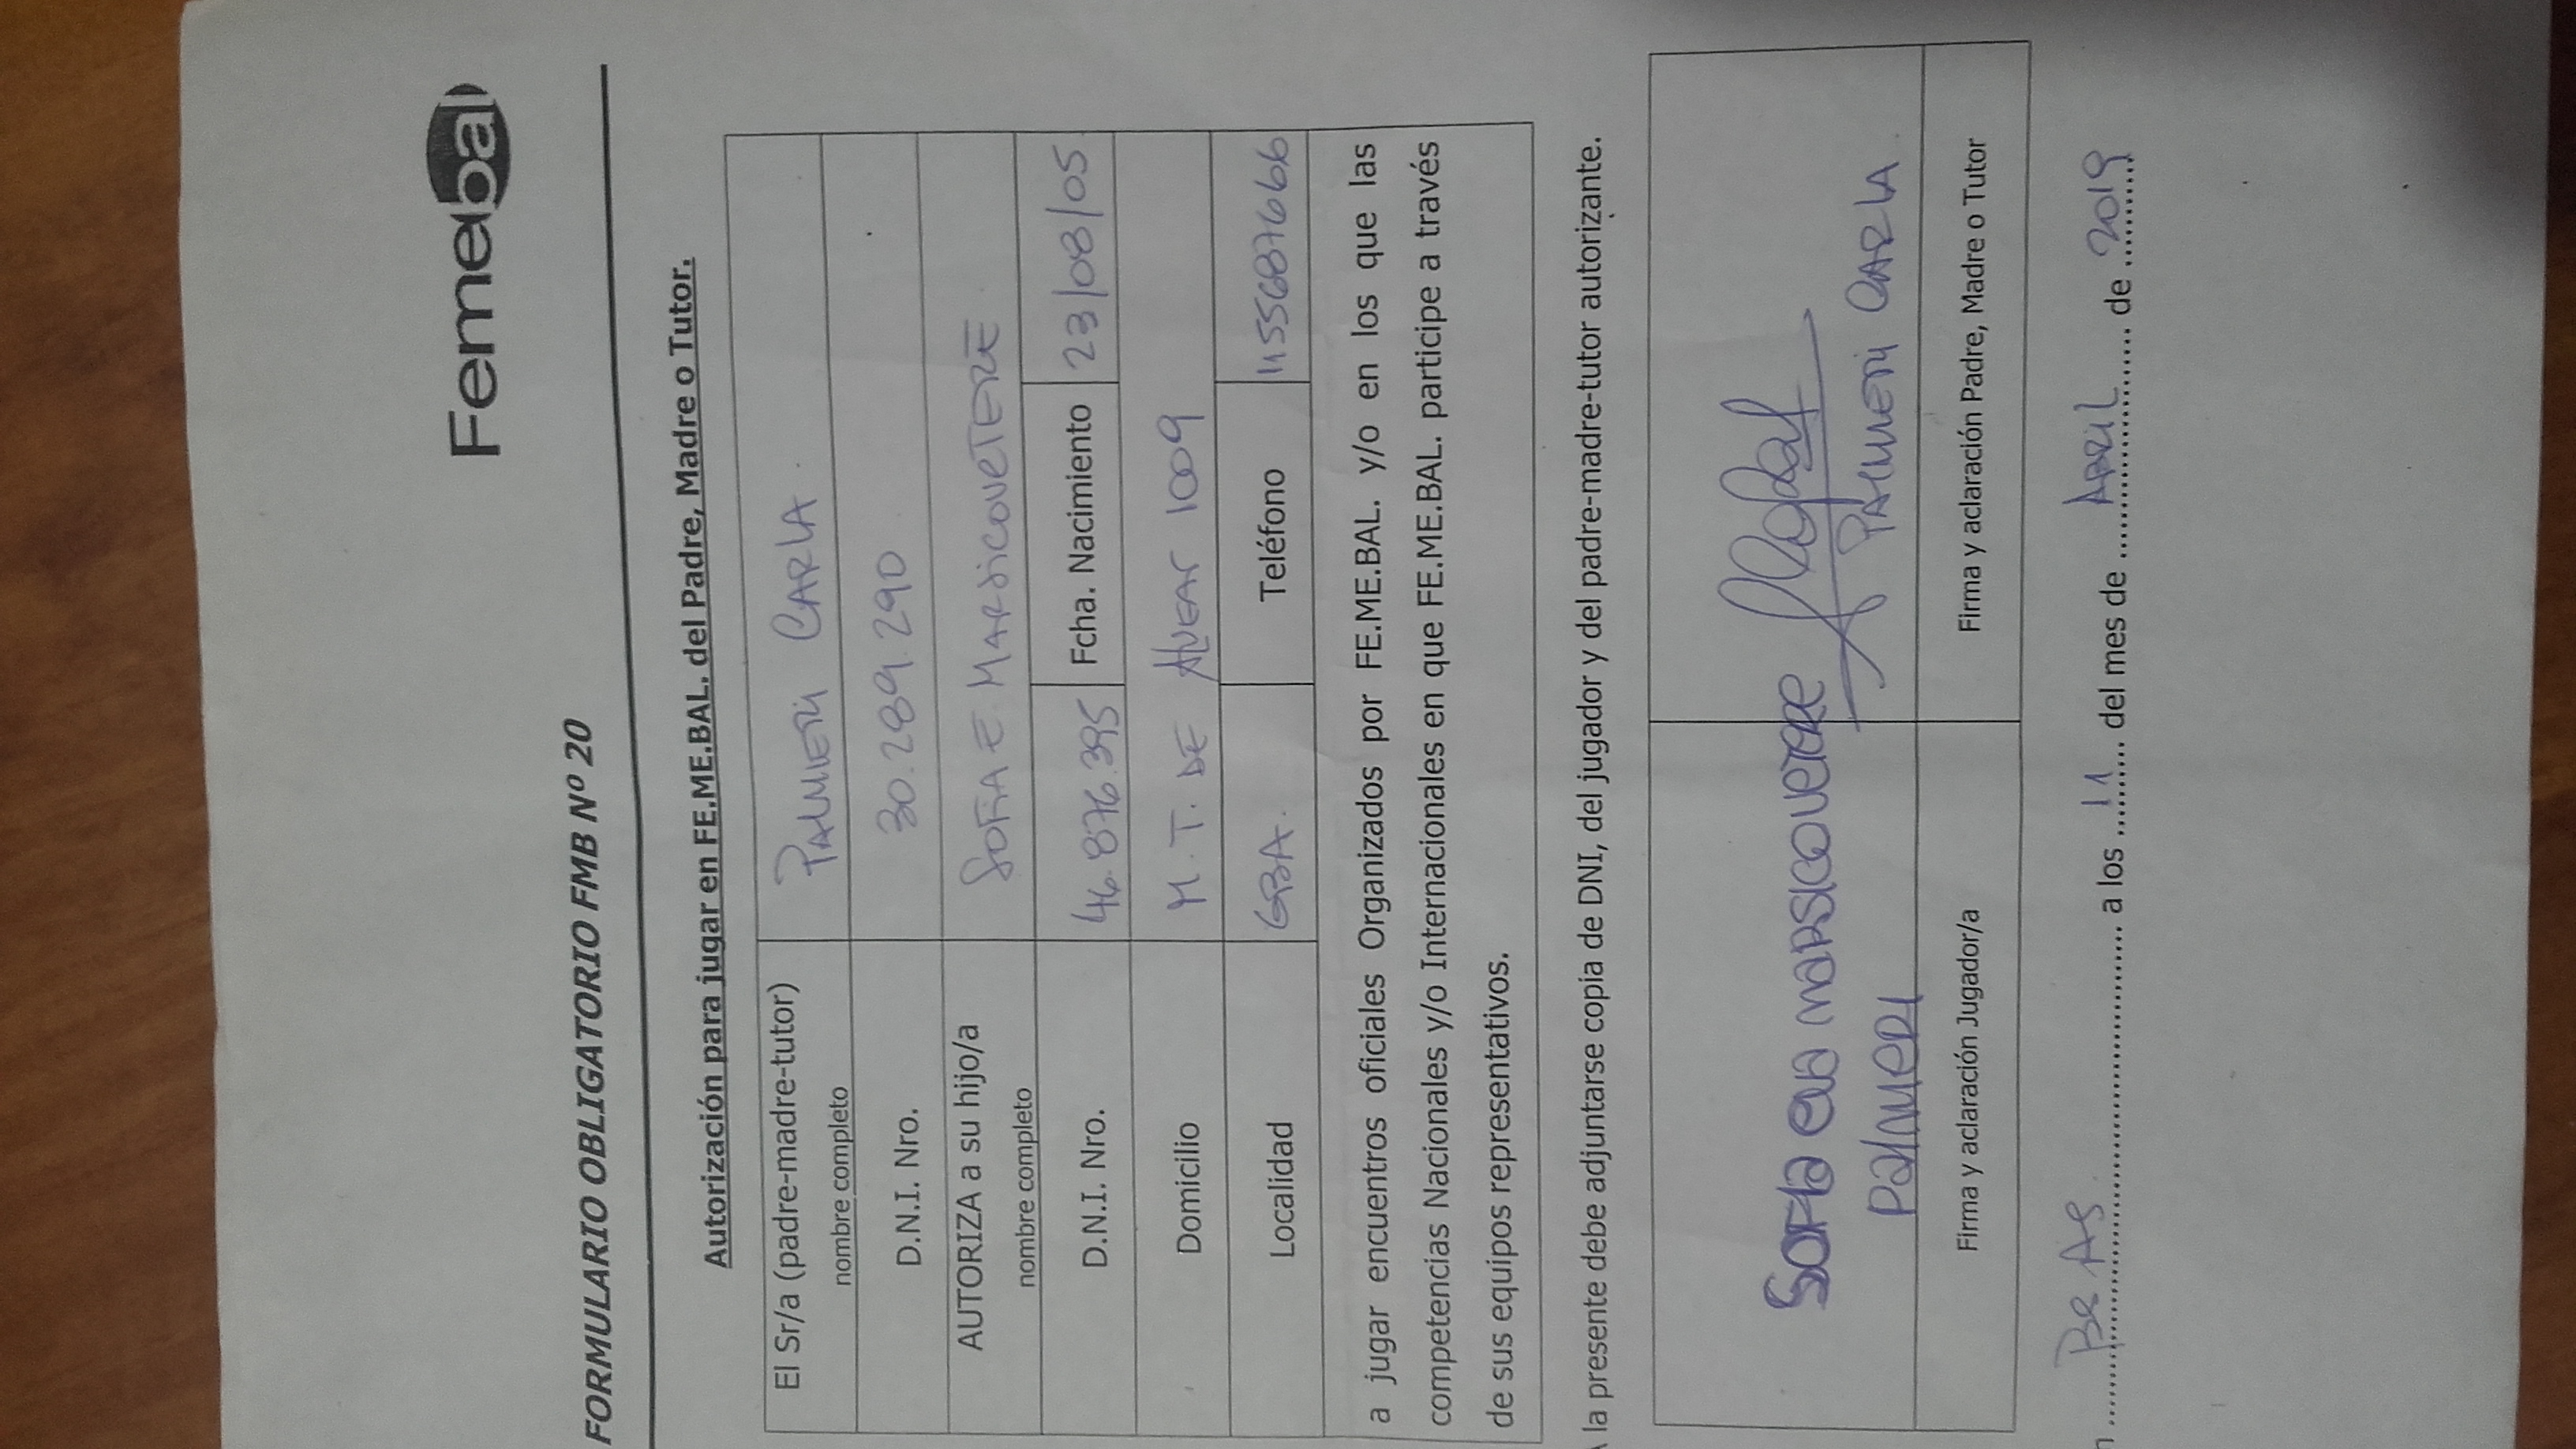 Femebal
FORMULARIO OBLIGATORIO FMB Nº 20
Autorización para jugar en FE.ME.BAL. del Padre, Madre o Tutor.
El Sr/a (padre-madre-tutor) nombre completo PALMIERI CARLA.
D.N.I. Nro. 30.289.290
AUTORIZA a su hijo/a nombre completo SOFIA E. MARSICOVETERE
D.N.I. Nro. 46.876.395 Fcha. Nacimiento 23/08/05
Domicilio M. T. DE ALVEAR 1009
Localidad GBA. Teléfono 1155687666
a jugar encuentros oficiales Organizados por FE.ME.BAL. y/o en los que las
competencias Nacionales y/o Internacionales en que FE.ME.BAL. participe a través
de sus equipos representativos.
la presente debe adjuntarse copia de DNI, del jugador y del padre-madre-tutor autorizante.
SOFIA eva MARSICOVETERE
PALMIERI
PALMIERI CARLA.
Firma y aclaración Jugador/a Firma y aclaración Padre, Madre o Tutor
Bs As a los 11 del mes de ABRIL de 2019